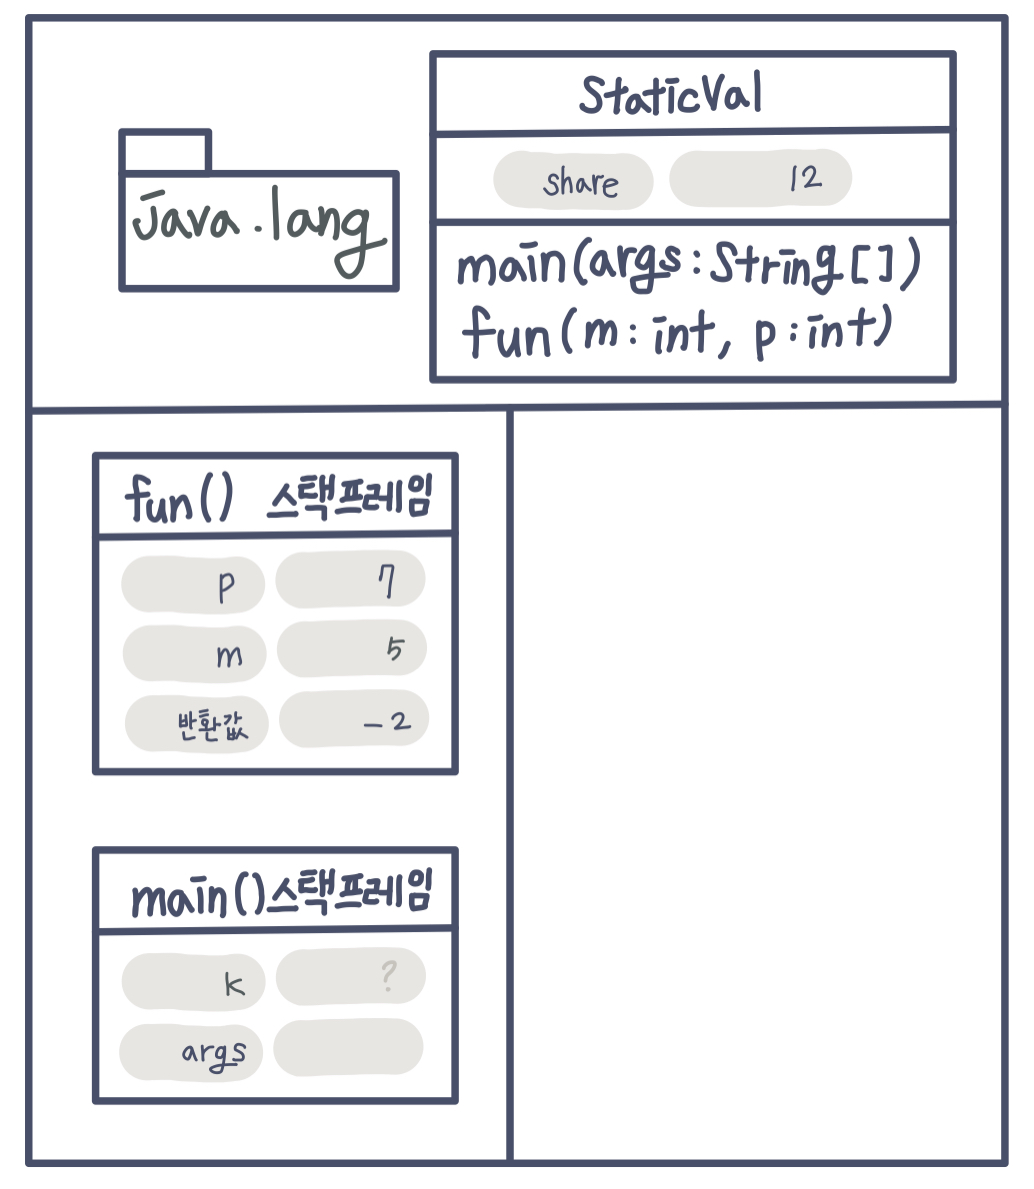 java.lang
StaticVal
share 12
main(args:String[])
fun(m:int, p:int)
fun() 스택프레임
p 7
m 5
반환값 -2
main()스택프레임
k ?
args